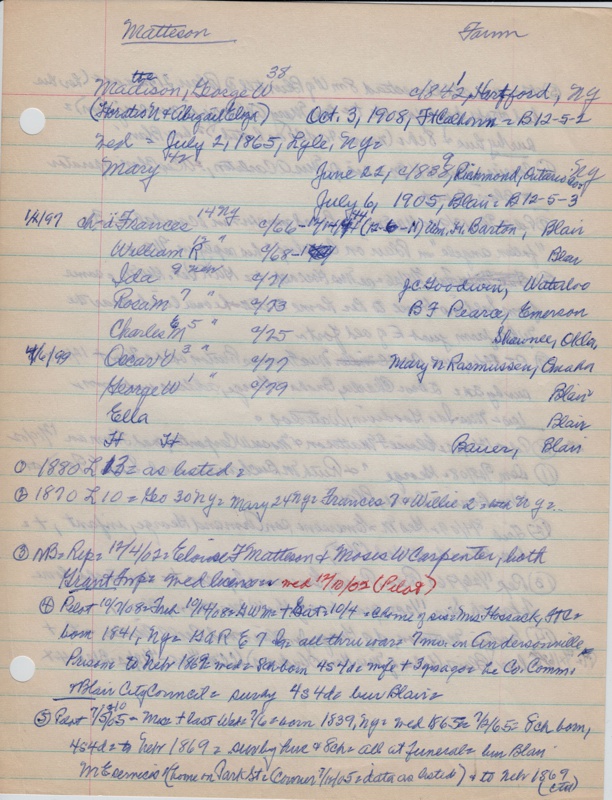 Matteson Farm
Mattison, George W 38 c/1842, Hartford, NY
(Horatio N & Abigail) Oct. 3, 1908, Ft Calhoun = B12-5-2
wed = July 2, 1865, Lyle, NY=
Mary June 22, c/1859, Richmond, Ontario Co, NY
July 6, 1905, Blair = B-12-5-3
ch = Frances 14 NY c/66 - (12-6-11) Wm. H. Barton, Blair
William R " c/68 - Blair
Ida 9 c/71 J C Goodwin, Waterloo
Rosa M 7 " c/73 B F Pearce, Emerson
Charles E M 5 " c/75 Shawnee, Okla.
4/6/99 Oscar V 3 " c/77 Mary N Rasmussen, Omaha
George W 1 " c/79 Blair
Ella Blair
H H Bauer, Blair
① 1880 L 13 = as listed =
② 1870 L 10 = Geo 30 NY = Mary 24 NY = Frances & Willie 2 = both NY =
③ NB = Rep = 12/4/02 = Eloise F Matteson & Moses W Carpenter, both
Grant Imp = wed license = wed 12/10/02 (Pilot)
④ Pilot 10/7/08 = 10/14/08 = G W M = + Sat = 10/4 = home of sis = Mrs Hossack, Ft C =
born 1841, NY = GAR E 7 all thru war = 7 mo. in Andersonville
Prison = to Nebr 1869 = wed = 8 ch born 4s 4d = wife + 3 yrs ago = he Co. Comm.
& Blair City Council = surv by 4s 4d = bur Blair =
⑤ Pilot 7/13/05 = Mrs + last Wed = 7/6 = born 1839, NY = wed 1865 = 7/2/65 = 8 ch born,
4s 4d = to Nebr 1869 = surv by huse & 8 ch = all at funeral = bur Blair
M E services (home on Park St = Courier 7/12/05 = data as listed) & to Nebr 1869